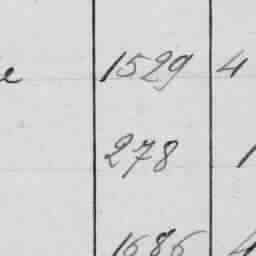 e 1529 4
278 1
1686 4